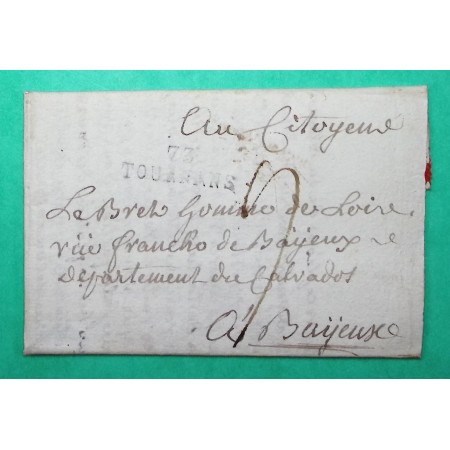 Au Citoyene
73
TOURNANS
Le Breto homme de Loire,
rüe francho de Baÿeux
Departement du Calvados
A Baÿeuxe